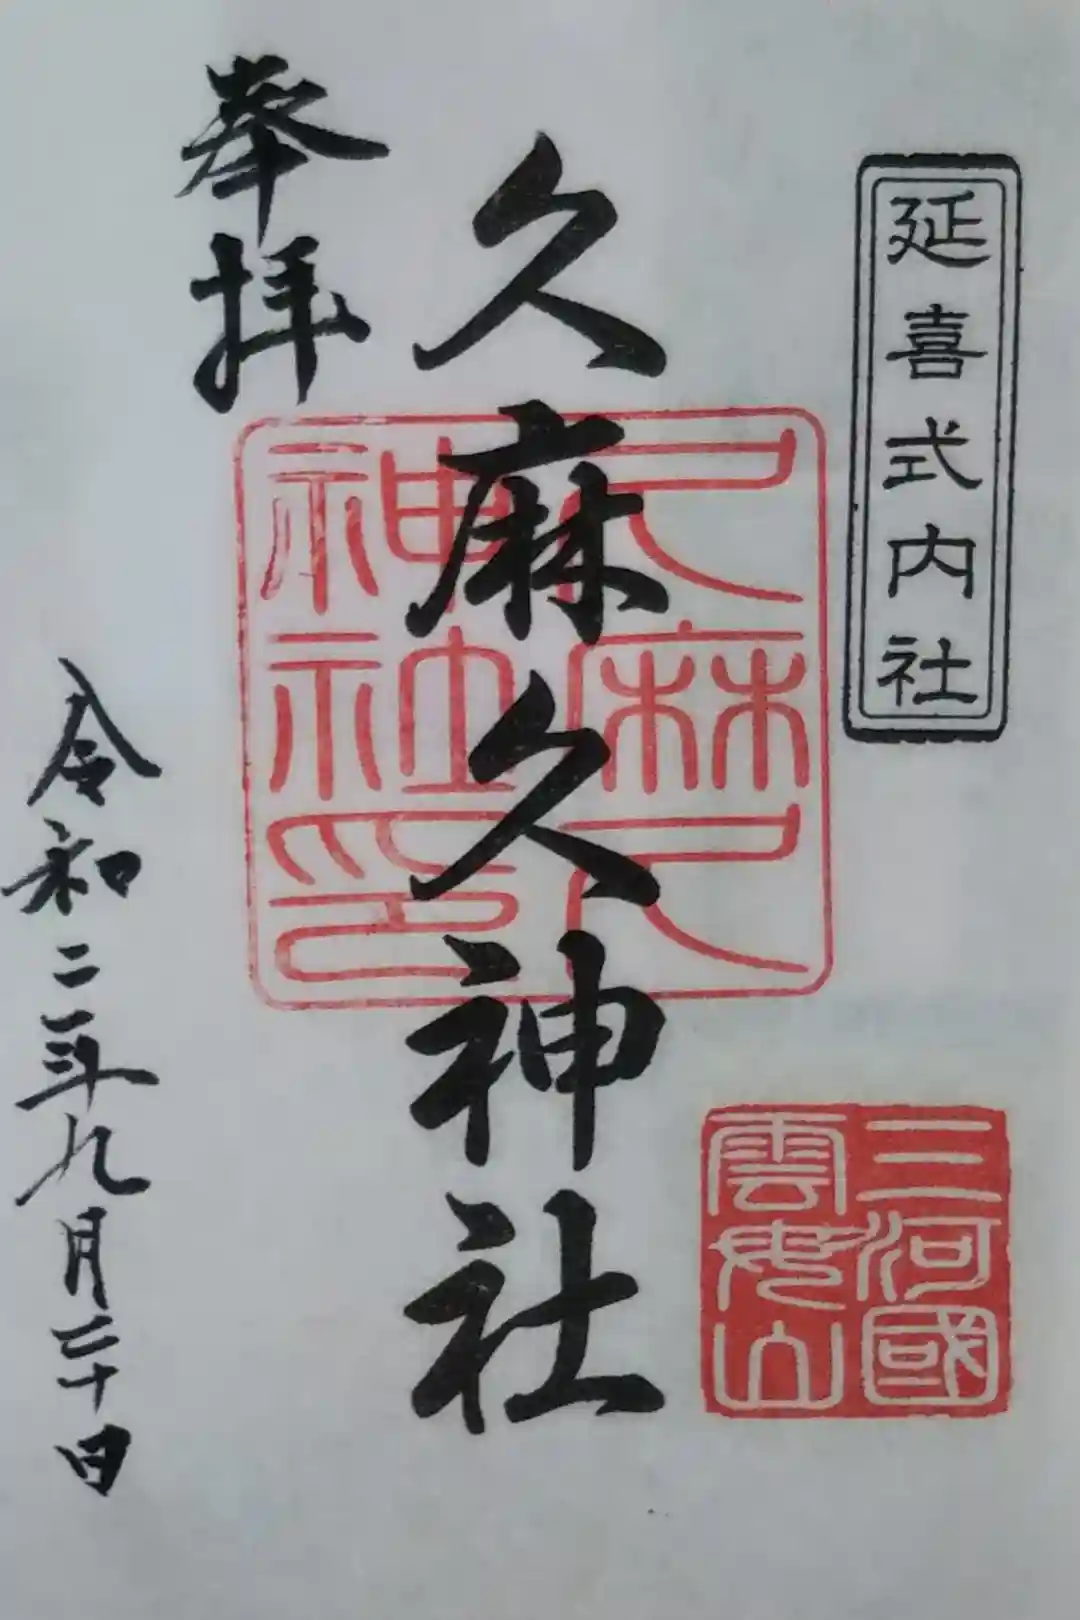 延喜式内社
三河國
雲母山
久麻久神社
久麻久
神社印
奉拝
令和二年九月二十日